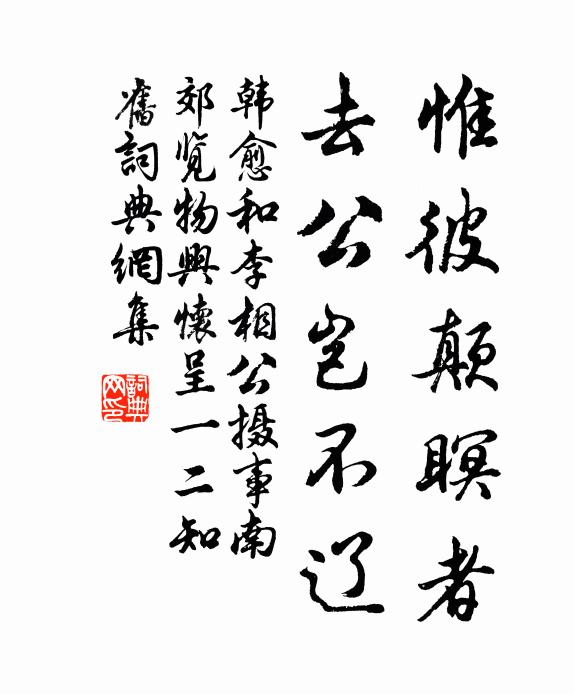 惟彼顛瞑者
去公岂不辽
韩愈和李相公摄事南
郊览物興懷呈一二知
舊詞典網集
詞典网印